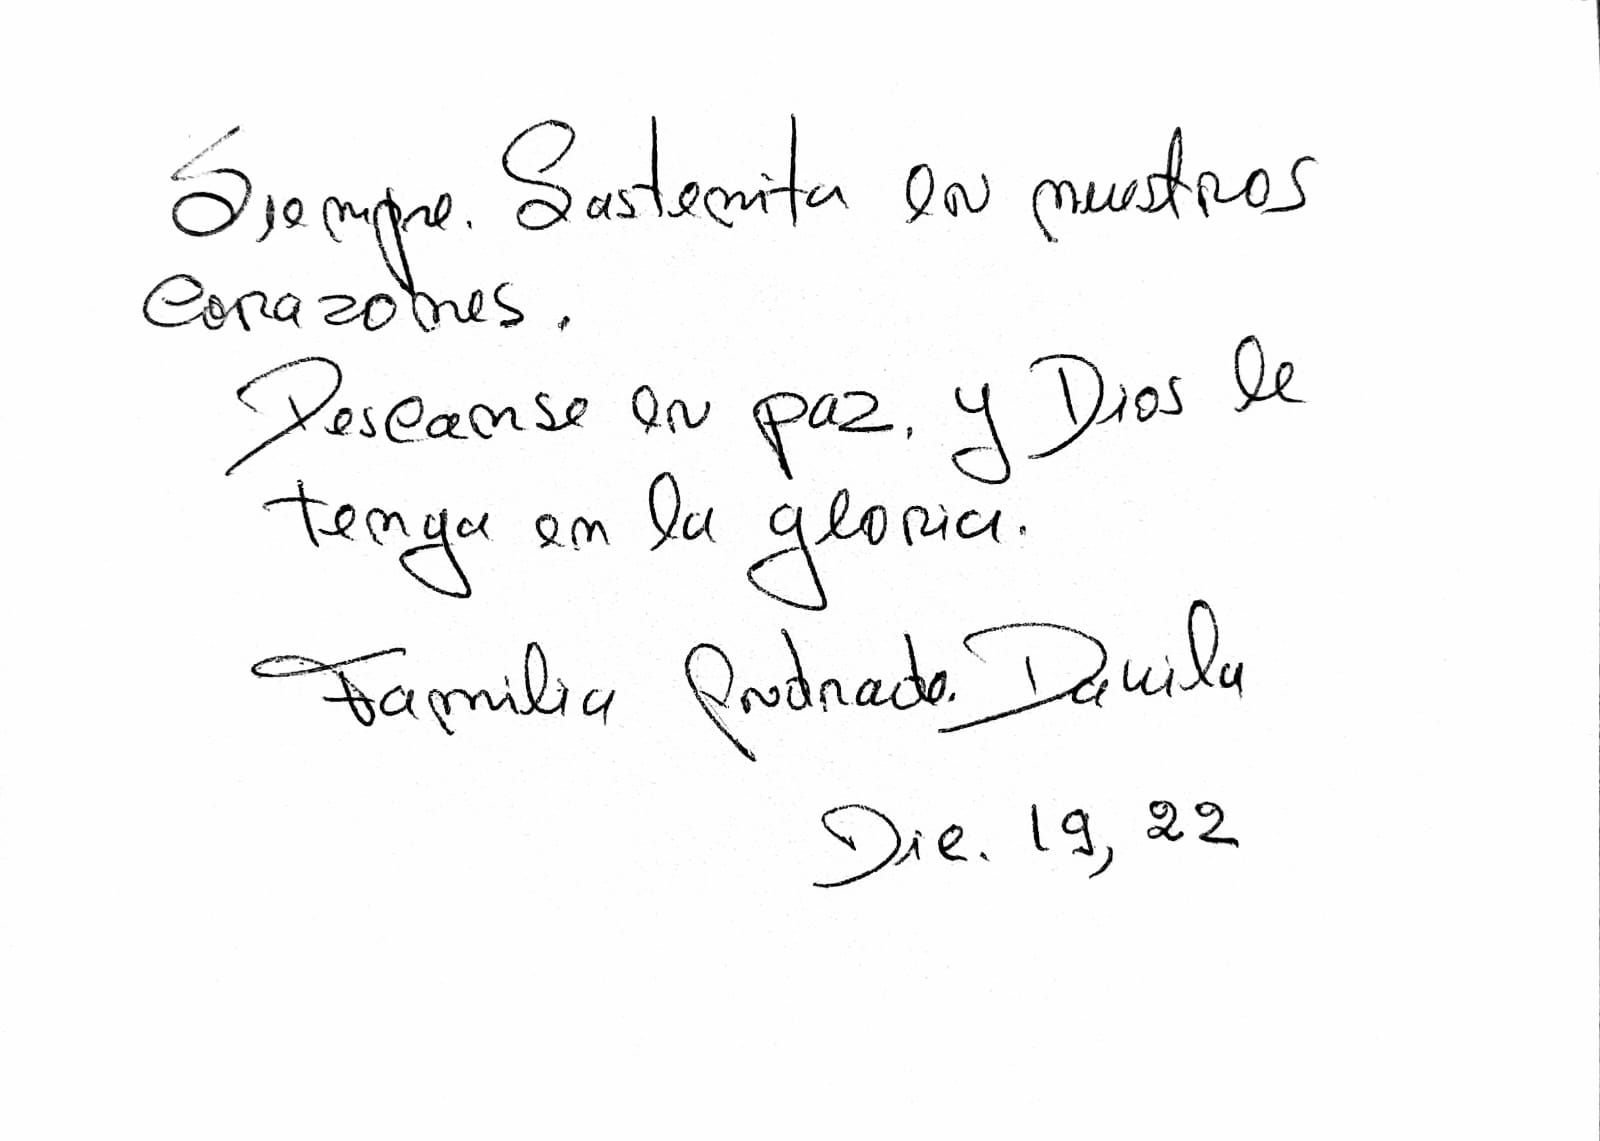 Siempre. Sastenita en nuestros
corazones.
Descanse en paz, y Dios le
tenga en la gloria.
Familia Andrade. Davila
Dic. 19, 22